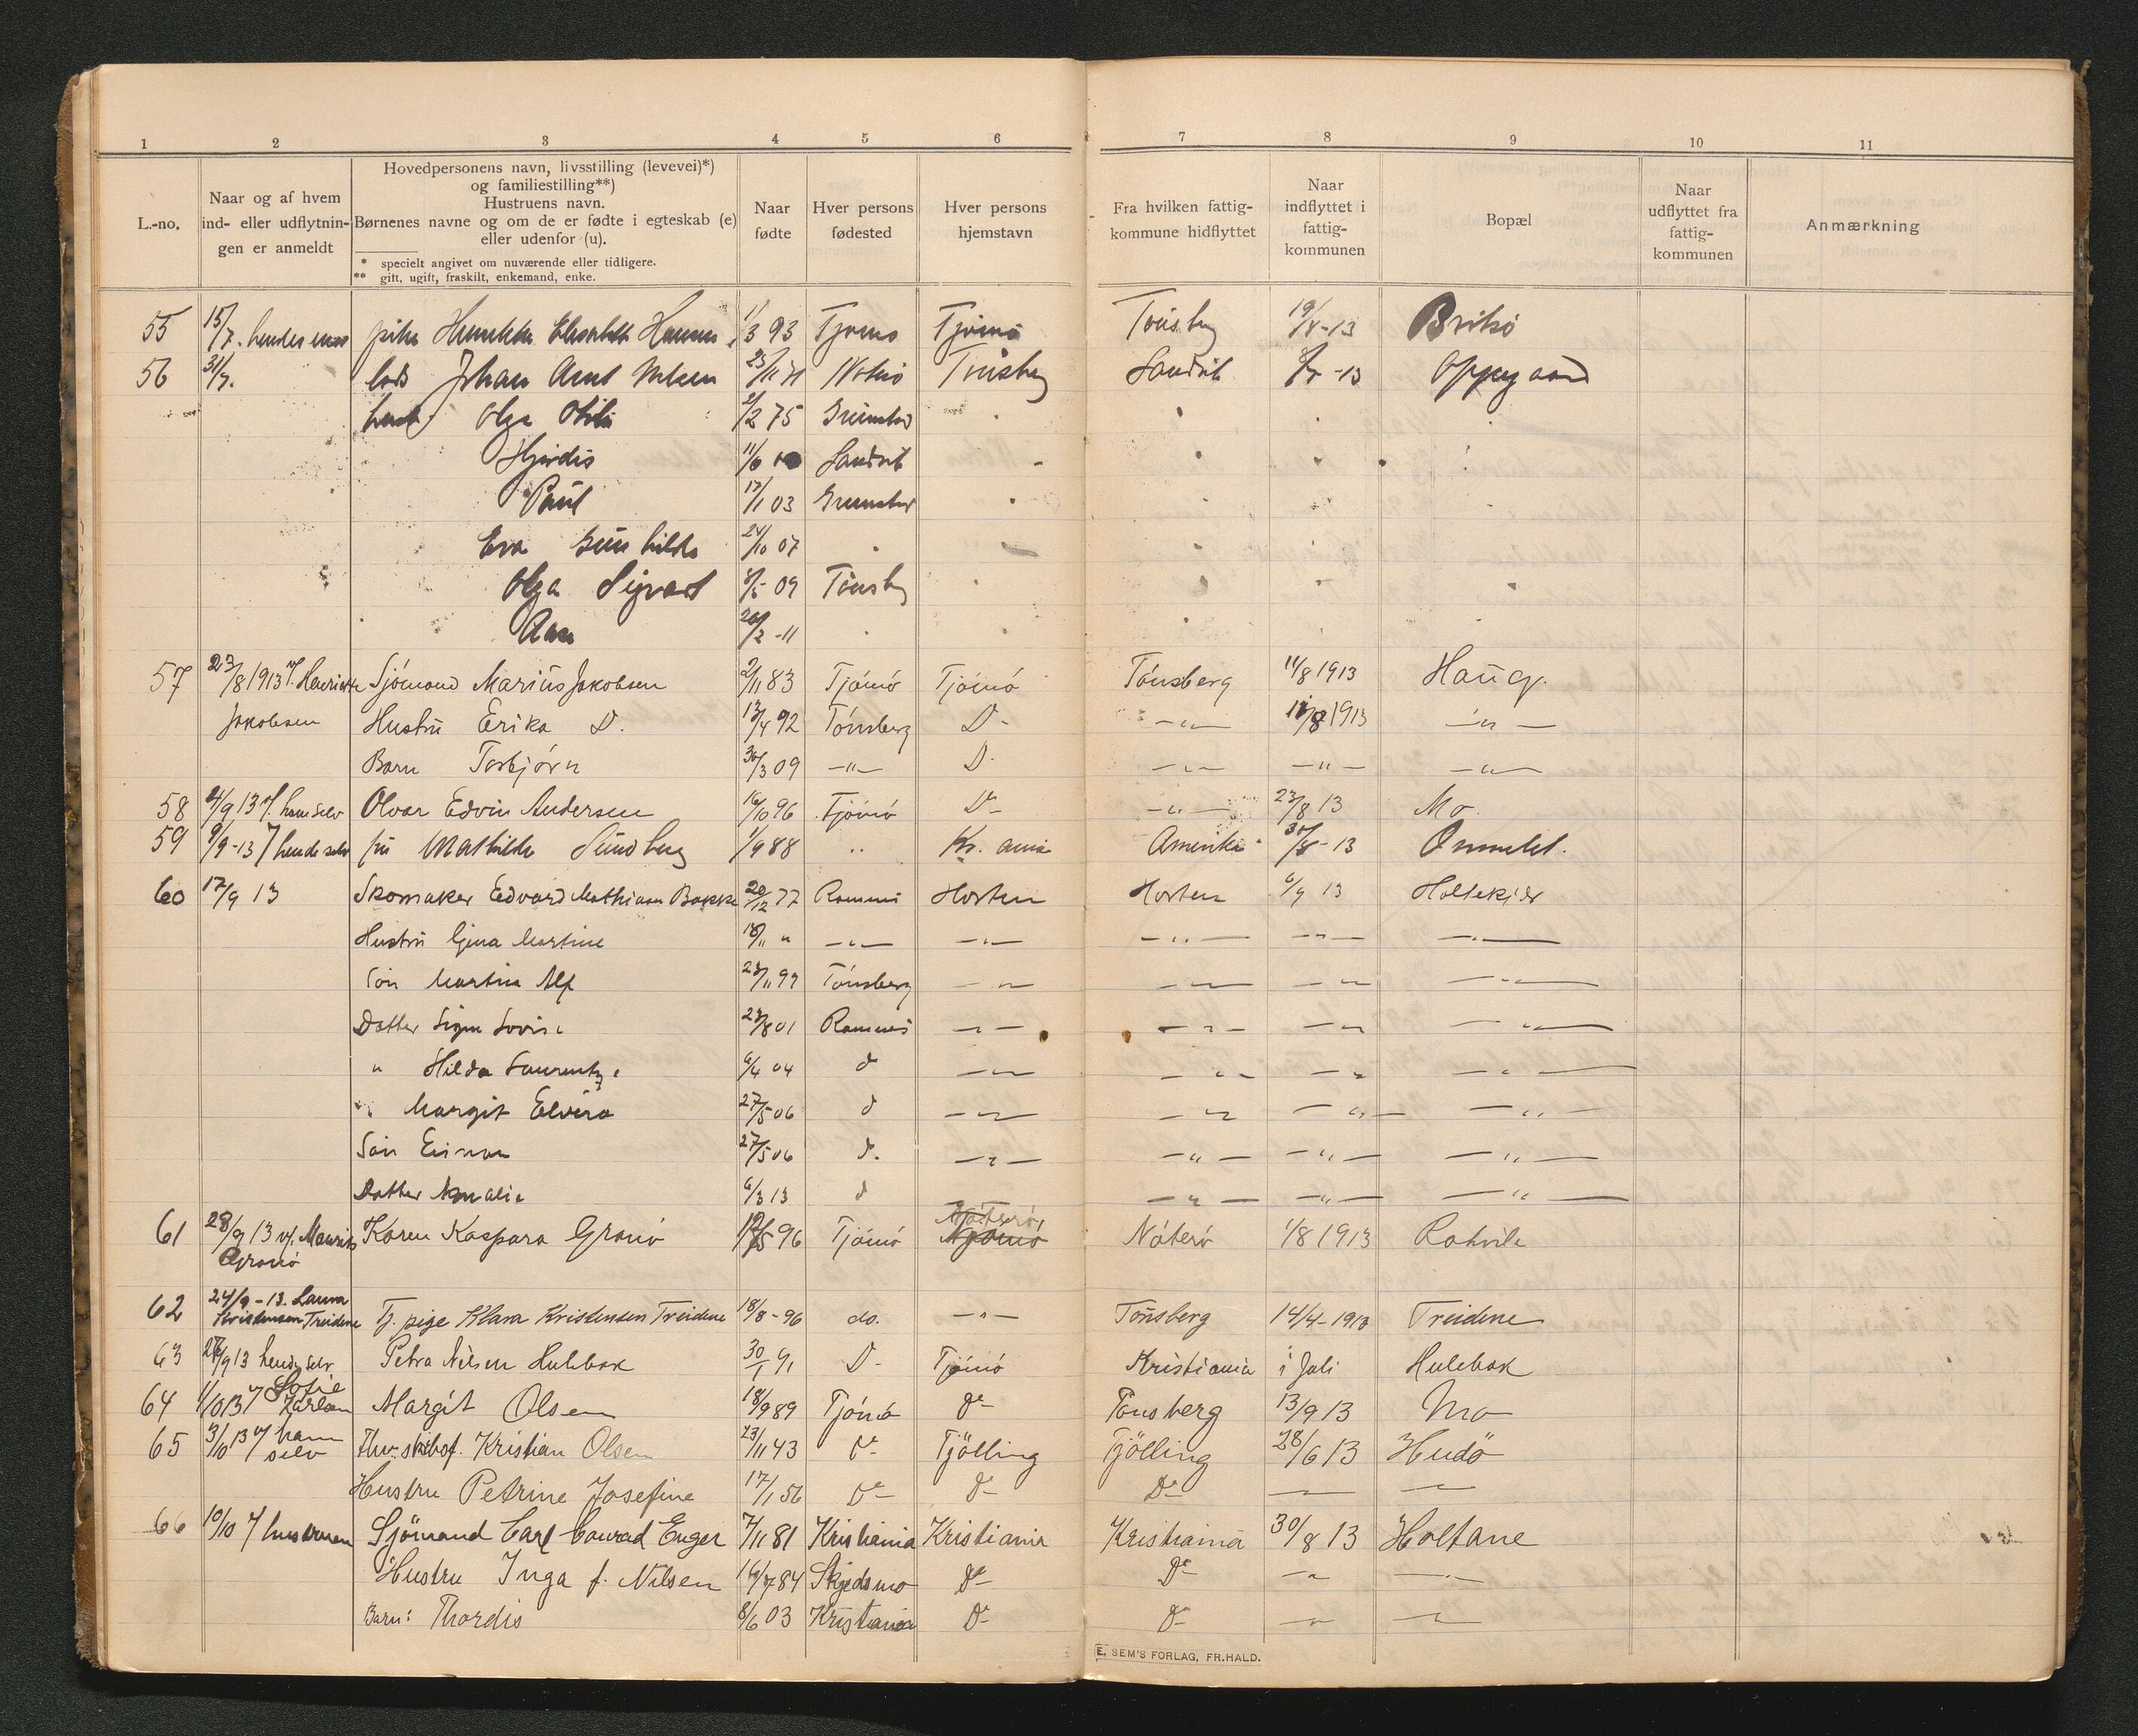 1 2 3 4 5 6 7 8 9 10 11
L.-no.
Naar og af hvem
ind- eller udflytnin-
gen er anmeldt
Hovedpersonens navn, livsstilling (levevei)*)
og familiestilling**)
Hustruens navn.
Børnenes navne og om de er fødte i egteskab (e)
eller udenfor (u).
* specielt angivet om nuværende eller tidligere.
** gift, ugift, fraskilt, enkemand, enke.
Naar
fødte
Hver persons
fødested
Hver persons
hjemstavn
Fra hvilken fattig-
kommune hidflyttet
Naar
indflyttet i
fattig-
kommunen
Bopæl
Naar
udflyttet fra
fattig-
kommunen
Anmærkning
55 15/7. pike Elisabeth Hansen 1/3 93 Tjømø Tjømø Tønsberg Brikø
56 31/7. lods Johan Arnt Nilsen Nøterø Tønsberg Sandvik Oppegaard
hust. Olga 2/2 75 Grimstad
Hjørdis Sandvik
Paul 17/1 03 Grimstad
Eva Gunhilda 24/10 07
Olga Sigvart 09 Tønsbg
Aase 20/2 -11
57 23/8 1913 v/ Henriette Sjømand Marius Jakobsen 2/11 83 Tjømø Tjømø Tønsberg 11/8 1913 Haug.
Jakobsen Hustru Erika D. 13/4 92 Tønsberg D- -"- 11/8 1913 -"-
Barn Torbjørn 30/3 09 -"- D- -"- -"- -"-
58 4/9 13 v/ ham selv Olvar Edvin Andersen 16/10 96 Tjømø Do -"- 23/8 13 Mo
59 9/9-13 v/ hende selv fru Mathilde Sundberg 1/9 88 " Kr. ania Amerika 30/8-13 Ormelet.
60 17/9 13 Skomaker Edvard Mathiasen Bakke 20/12 77 Ramnes Horten Horten 6/9 13 Holtekjær
Hustru Gina Martine 18/11 " -"- -"- -"- -"- -"-
Søn Martin Alf 28/11 99 Tønsberg -"- -"- -"- -"-
Datter Signe Lovise 28/8 01 Ramnes -"- -"- -"- -"-
" Hilda Laurentze 6/4 04 d -"- -"- -"- -"-
" Margit Elvira 27/5 06 d -"- -"- -"- -"-
Søn Einar 27/5 06 d. -"- -"- -"- -"-
Datter Amalie 6/3 13 d -"- -"- -"-
61 28/9 13 v/. Maurits Karen Kaspara Grønø 12/5 96 Tjømø Nøterø, Tjømø Nøterø 1/8 1913 Røkvik
Grønø
62 24/9 - 13. Laura
Kristensen Treidene Tj. pige Klara Kristensen Treidene 18/8-96 do. -"- Tønsberg 14/4-1913 Treidene
63 28/9 13 hende selv Petra Nilsen Hulebak 30/1 91 D- Tjømø Kristiania i Juli Hulebak
64 1/10 13 v/ Sofie Karlsen Margit Olsen 18/9 89 Tjømø do Tønsberg 13/9 13 Mo
65 3/10 13 v/ ham selv Fhv. skibsf. Kristian Olsen 23/11 43 do Tjölling Tjölling 28/6 13 Hudö
Hustru Petrine Josefine 17/1 56 do do Do -"- -"-
66 10/10 v/ hustruen Sjömand Carl Conrad Enger 7/11 81 Kristiania Kristiania Kristiania 30/8 13 Holtane
Hustru Inga f. Nilsen 16/7 84 Skjedsmo do Do -"- -"-
Barn: Thordis 8/6 03 Kristiania do do -"- -"-
E. SEM'S FORLAG, FR.HALD.